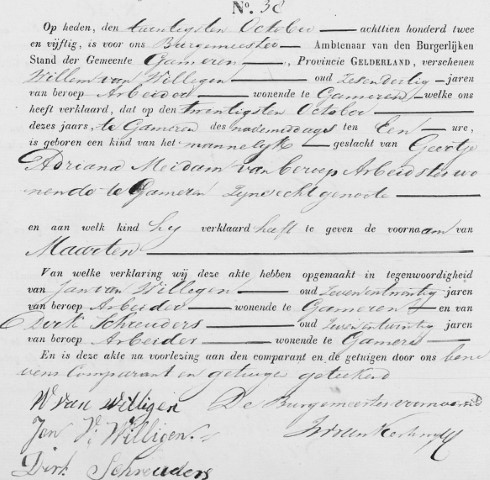 No. 38
Op heden, den twintigsten October achttien honderd twee
en vijftig, is voor ons Burgemeester Ambtenaar van den Burgerlijken
Stand der Gemeente Gameren, Provincie GELDERLAND, verschenen
Willem van Willigen oud jaren
van beroep Arbeider wonende te Gameren welke ons
heeft verklaard, dat op den twintigsten October
dezes jaars, te Gameren des namiddags ten Een ure,
is geboren een kind van het mannelyk geslacht van Geertje
Adriana Meidam van beroep Arbeidster wo
nende te Gameren zyne echtgenoote
en aan welk kind hy verklaard heeft te geven de voornaam van
Maarten
Van welke verklaring wij deze akte hebben opgemaakt in tegenwoordigheid
van Jan van Willigen oud zevenentwintig jaren
van beroep Arbeider wonende te Gameren en van
Dirk Schreuders oud zevenentwintig jaren
van beroep Arbeider wonende te Gameren
En is deze akte na voorlezing aan den comparant en de getuigen door ons bene
vens Comparant en getuige geteekend
W van willigen De Burgemeester voornoemd
Jan V. Willigen
Dirk Schreuders